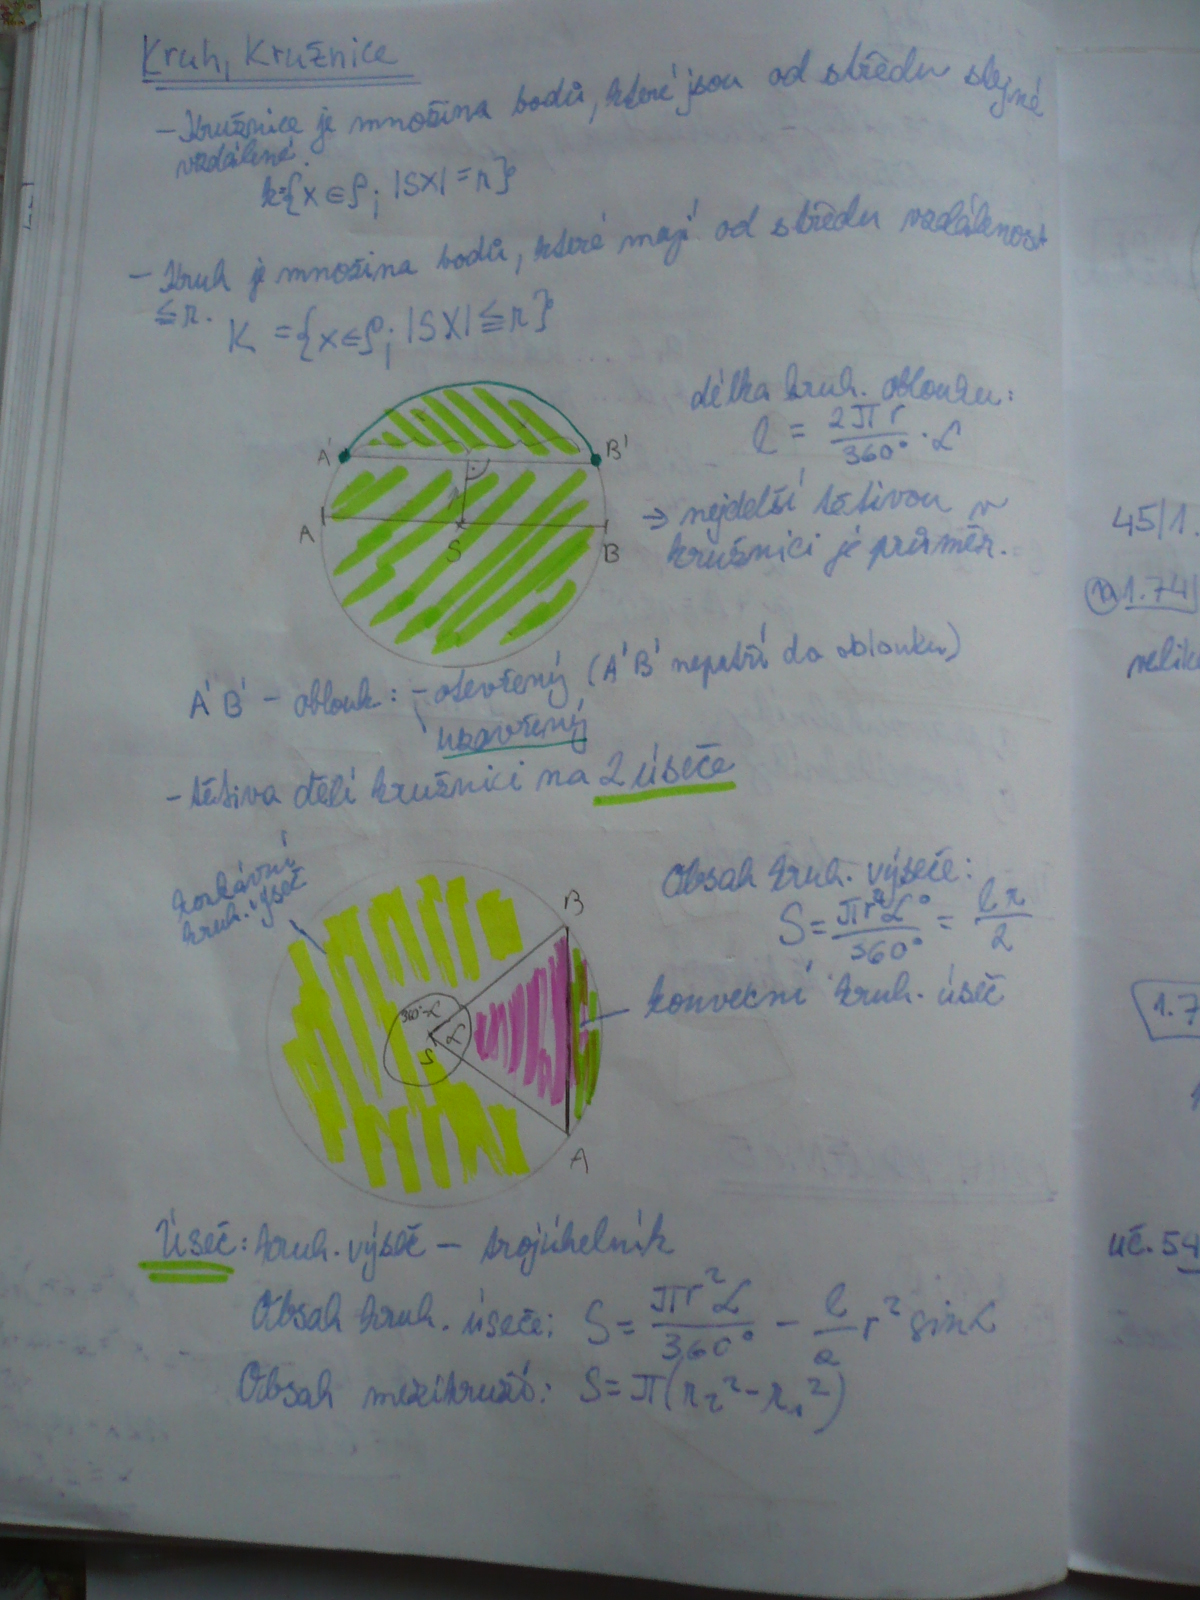 Kruh, Kružnice
- Kružnice je množina bodů, které jsou od středu stejně
vzdálené.
k={x∈ρ; |SX|=r}
- Kruh je množina bodů, které mají od středu vzdálenost
≦r. K = {x∈ρ; |SX|≦r}
délka kruh. oblouku:
l = 2πr/360° · α
A' B'
A S B
→ nejdelší tětivou v
kružnici je průměr.
A'B' - oblouk: - otevřený (A'B' nepatří do oblouku)
uzavřený
- tětiva dělí kružnici na 2 úseče
konkávní
kruh. úseč
Obsah kruh. výseče:
S = πr²α°/360° = lr/2
B
konvexní kruh. úseč
360°-α
S α
A
Úseč: kruh. výseč - trojúhelník
Obsah kruh. úseče: S = πr²α/360° - l/2 r² sinα
Obsah mezikruží: S = π(r₂² - r₁²)
45/1.
1.74
velik
1.7
uč. 54